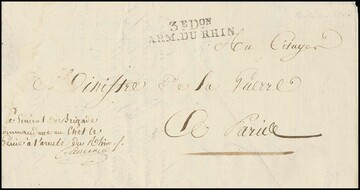 3e Don
ARM. DU RHIN
Au Citoyen
Le Ministre De la Guerre
A Paris
Le Général de Brigade
Commandant en Chef le
Génie à l'armée du Rhin